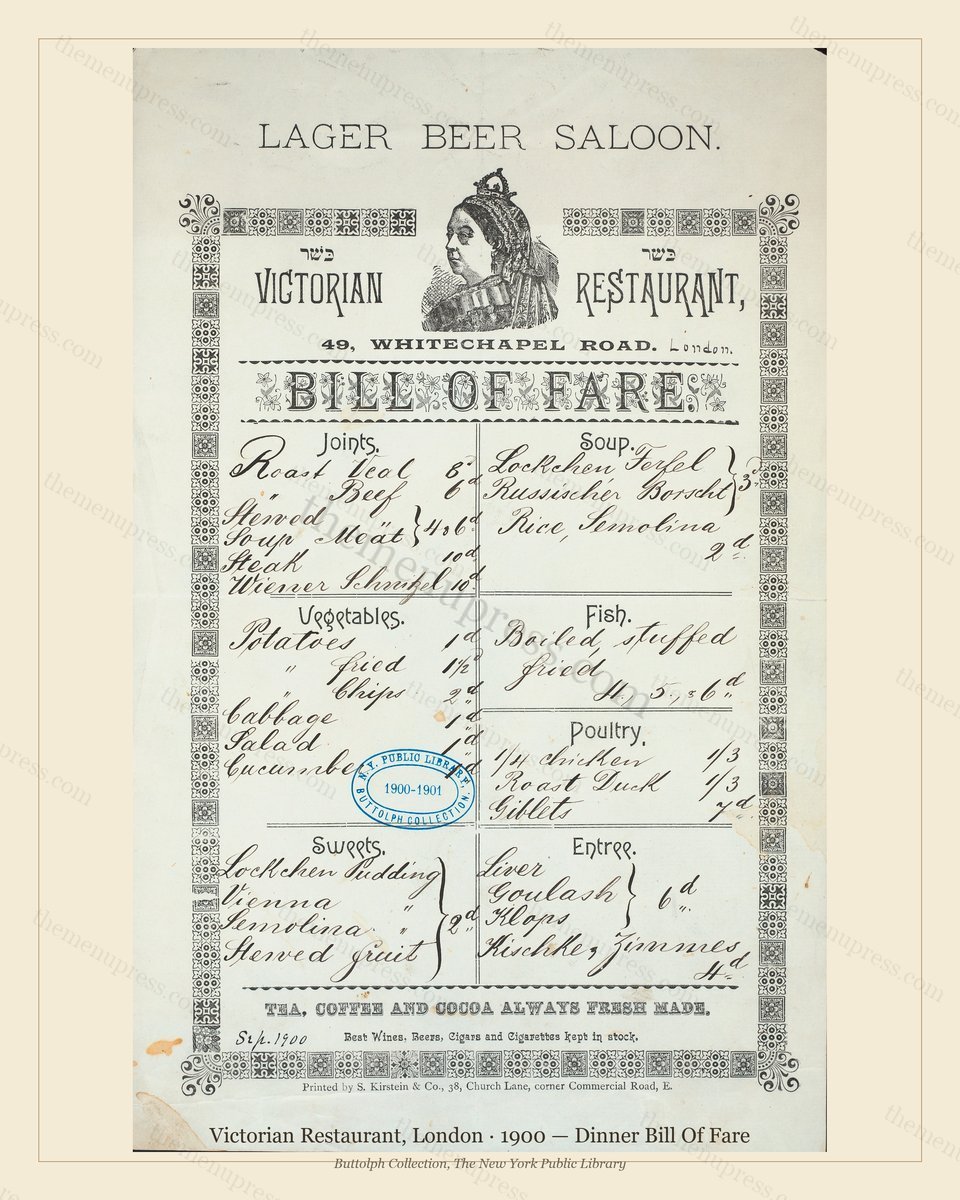 LAGER BEER SALOON.
כשר כשר
VICTORIAN RESTAURANT,
49, WHITECHAPEL ROAD. London.
BILL OF FARE.
Joints.
Roast Veal 8d
" Beef 6d
Stewed
Soup Meat } 4 & 6d
Steak 10d
Wiener Schnitzel 10d
Vegetables.
Potatoes 1d
" fried 1½d
" Chips 2d
Cabbage 1d
Salad 1d
Cucumber 1d
Sweets.
Lockchen Pudding
Vienna "
Semolina "
Stewed fruit } 2d
Soup.
Lockchen Ferfel
Russischer Borscht } 3d
Rice, Semolina
2d
Fish.
Boiled, stuffed
fried
4. 5. & 6d
Poultry.
1/4 chicken 1/3
Roast Duck 1/3
Giblets 7d
Entree.
Liver
Goulash
Klops } 6d
Kischke, Zimmes
4d
N.Y. PUBLIC LIBRARY.
1900-1901
BUTTOLPH COLLECTION.
TEA, COFFEE AND COCOA ALWAYS FRESH MADE.
Sep. 1900
Best Wines, Beers, Cigars and Cigarettes kept in stock.
Printed by S. Kirstein & Co., 38, Church Lane, corner Commercial Road, E.
Victorian Restaurant, London · 1900 — Dinner Bill Of Fare
Buttolph Collection, The New York Public Library
themenupress.com